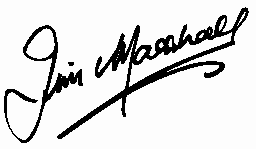 Jim Marshall